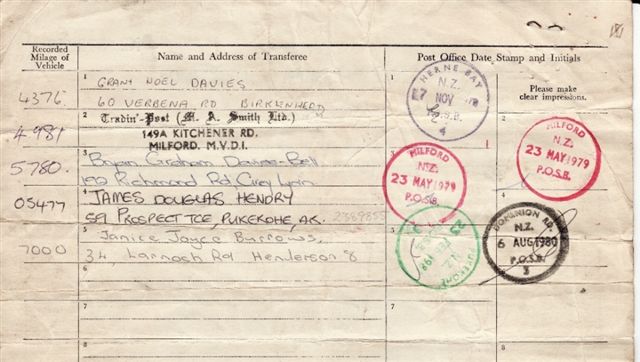 Recorded
Milage of
Vehicle
Name and Address of Transferee
Post Office Date Stamp and Initials
Please make
clear impressions.
1
GRANT NOEL DAVIES
1
HERNE BAY
N.Z.
NOV
P.O.S.B.
4
4376
60 VERBENA RD BIRKENHEAD
2
Tradin'-Post (M. A. Smith Ltd.)
2
4981
149A KITCHENER RD.
MILFORD. M.V.D.I.
MILFORD
N.Z.
23 MAY 1979
P.O.S.B.
3
Bryan Graham
MILFORD
N.Z.
23 MAY 1979
P.O.S.B.
5780.
Richmond Rd, Grey Lynn
4
JAMES DOUGLAS HENDRY
05477
PROSPECT TCE, PUKEKOHE, AK.
5
Janice Joyce Burrows,
DOMINION RD.
N.Z.
6 AUG 1980
P.O.S.B.
3
7000
34, Larnoch Rd Henderson 8
6
6
7
7
8
8